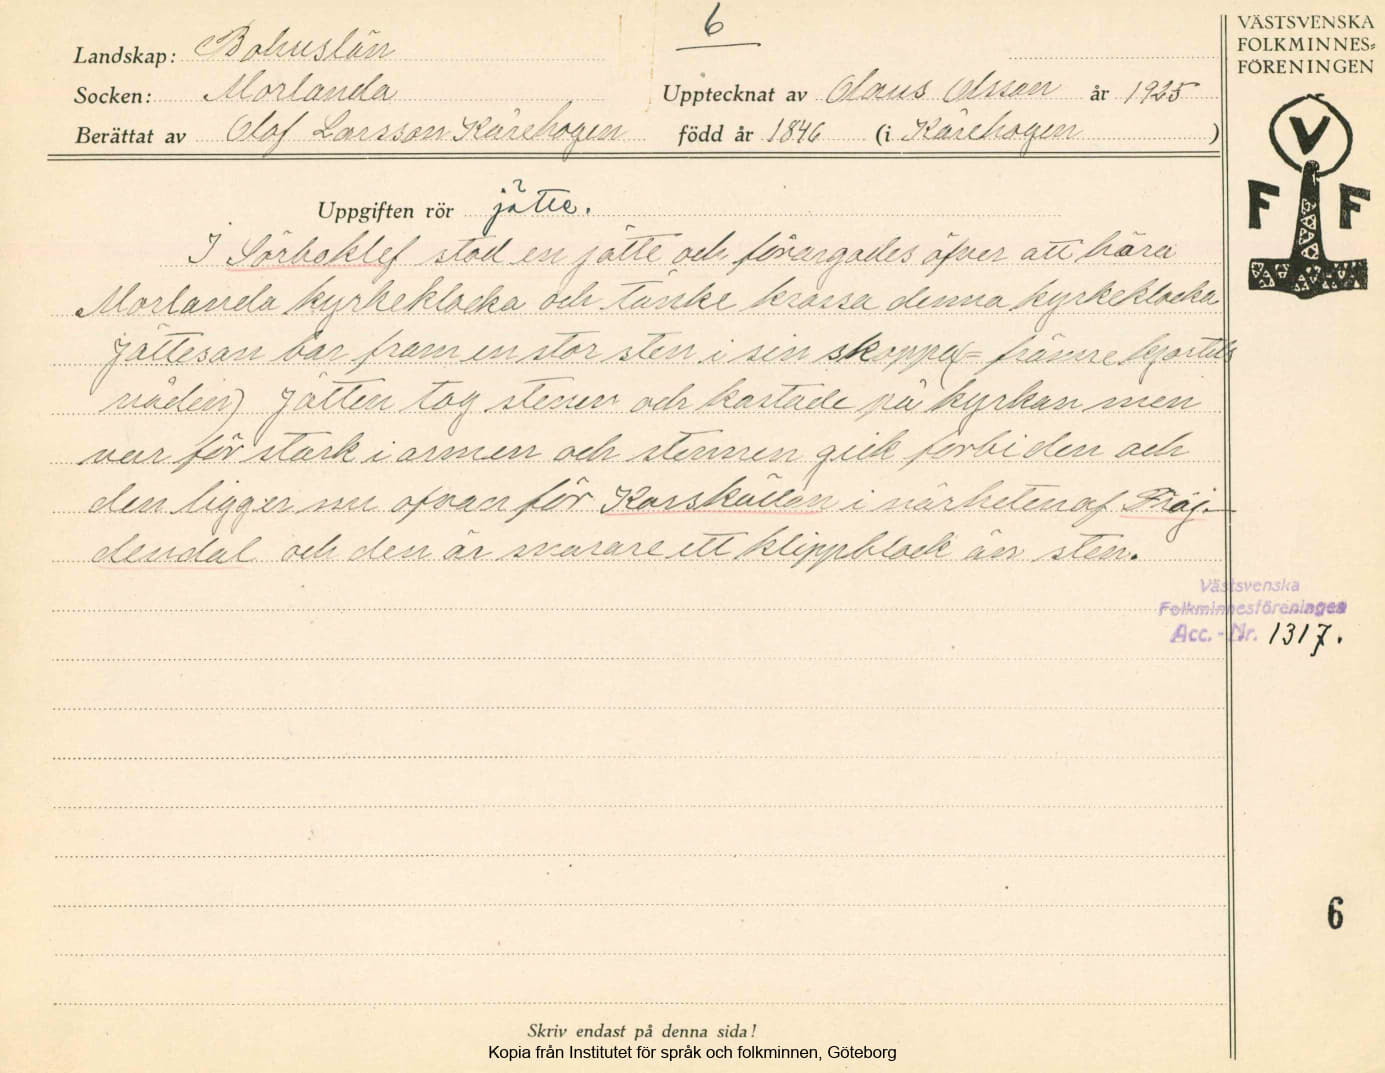 6
VÄSTSVENSKA
FOLKMINNES=
FÖRENINGEN
Landskap: Bohuslän
Socken: Morlanda
Upptecknat av Olaus Olsson år 1925
Berättat av Olof Larsson Kärehogen född år 1846 (i Kärehogen )
V
F F
Uppgiften rör jätte.
I Sörboklef stod en jätte och förargades öfver att höra
Morlanda kyrkeklocka och tänke krossa denna kyrkeklocka
Jättesan bar fram en stor sten i sin skoppe(= främre kjortel
våden) Jätten tog stenen och kastade på kyrkan men
var för stark i armen och stennen gick förbi den och
den ligger nu ofvan för Korskällan i närheten af Fröj-
dendal och den är snarare ett klippblock än sten.
Västsvenska
Folkminnesföreningen
Acc. - Nr. 1317.
6
Skriv endast på denna sida!
Kopia från Institutet för språk och folkminnen, Göteborg